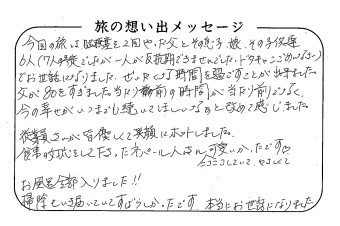 旅の想い出メッセージ
今回の旅は、 を2回やった父とその息子、娘、その子供達
6人(7人の予定でしたが一人が反抗期できませんでした。ドタキャンごめんなさい)
でお世話になりました。ぜいたくな時間を過ごすことが出来ました。
父が80をすぎました。当たり前の時間が当たり前でなく、
今の幸せがいつまでも続いてほしいなあと改めて感じました。
従業員さんが皆優しくて笑顔にホットしました。
食事の対応をして下さったネパール人さん可愛いかったです。
お風呂全部入りました!!
掃除もいき届いていてすばらしかったです。本当にお世話になりました